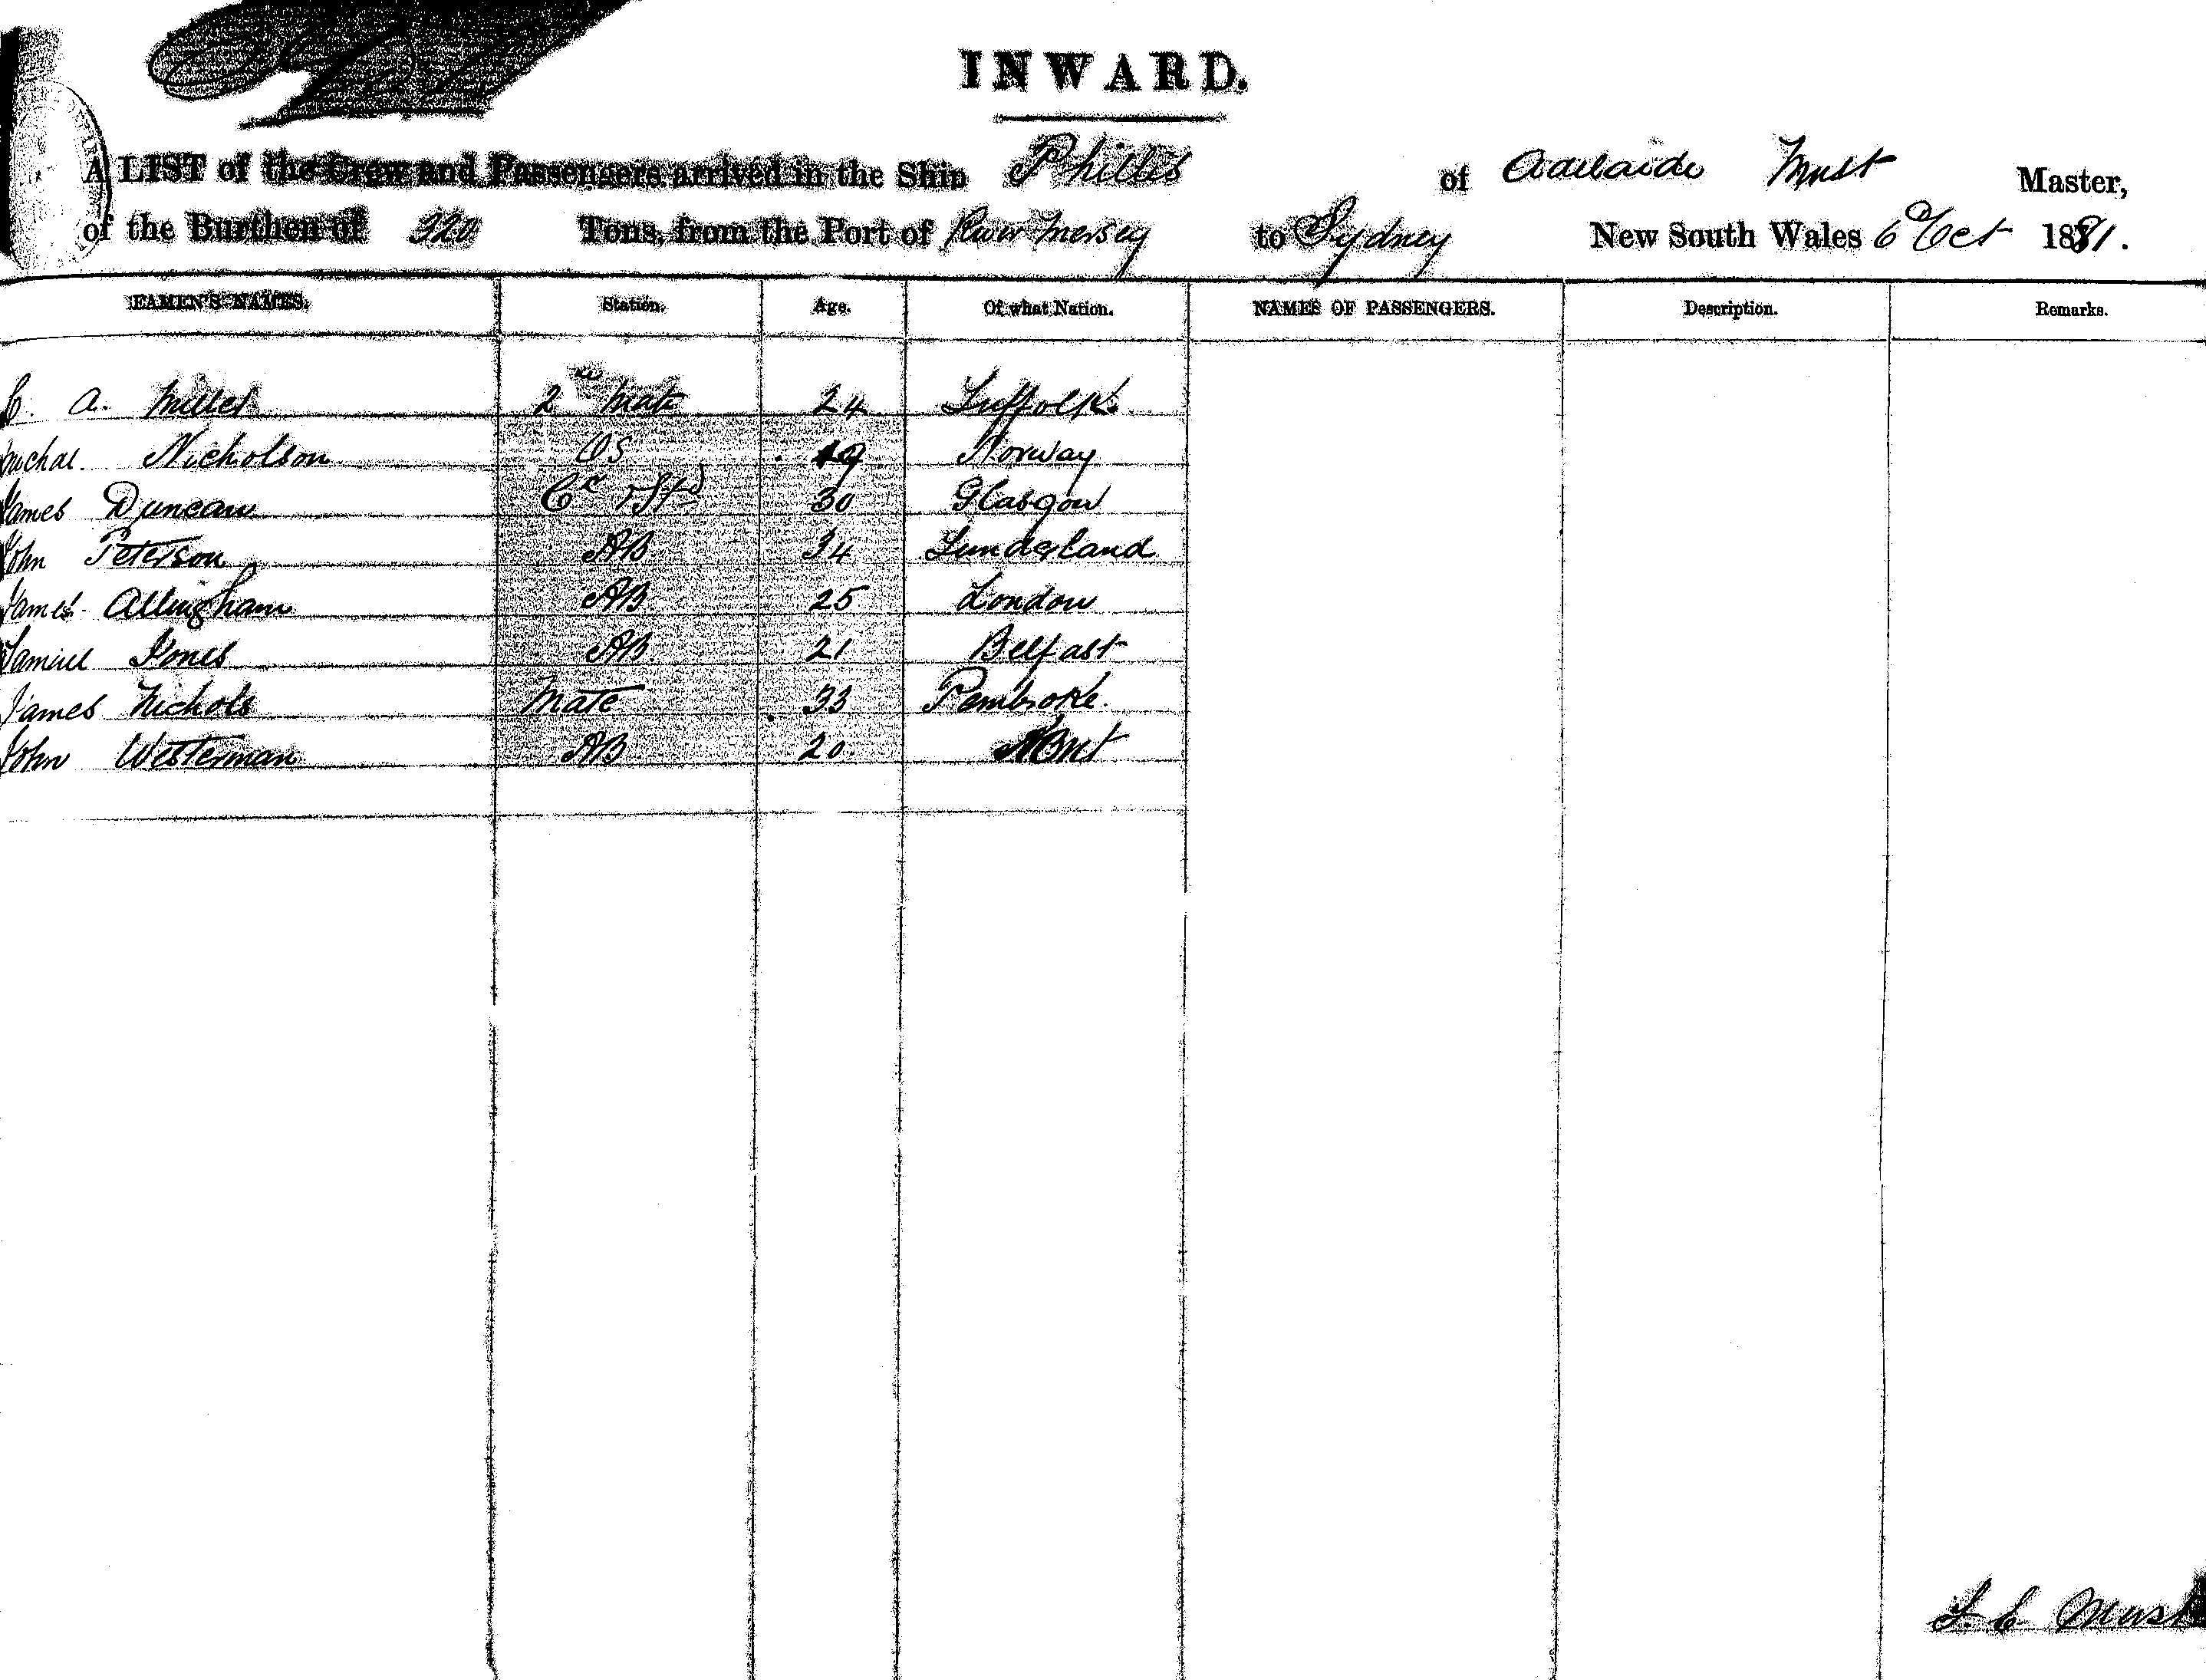 INWARD.
A LIST of the Crew and Passengers arrived in the Ship Phillis of Adelaide Must Master,
of the Burthen of 320 Tons, from the Port of River Mersey to Sydney New South Wales 6 Oct 1881.
EAMEN'S NAMES. Station. Age. Of what Nation. NAMES OF PASSENGERS. Description. Remarks.
C. A. Miller 2nd Mate 24 Suffolk
Nicholson OS 19 Norway
James Duncan Ck & Std 30 Glasgow
John Peterson AB 34 Sunderland
James Allingham AB 25 London
Samuel Jones AB 21 Belfast
James Nichols Mate 33 Pembroke
John Westerman AB 20
Must